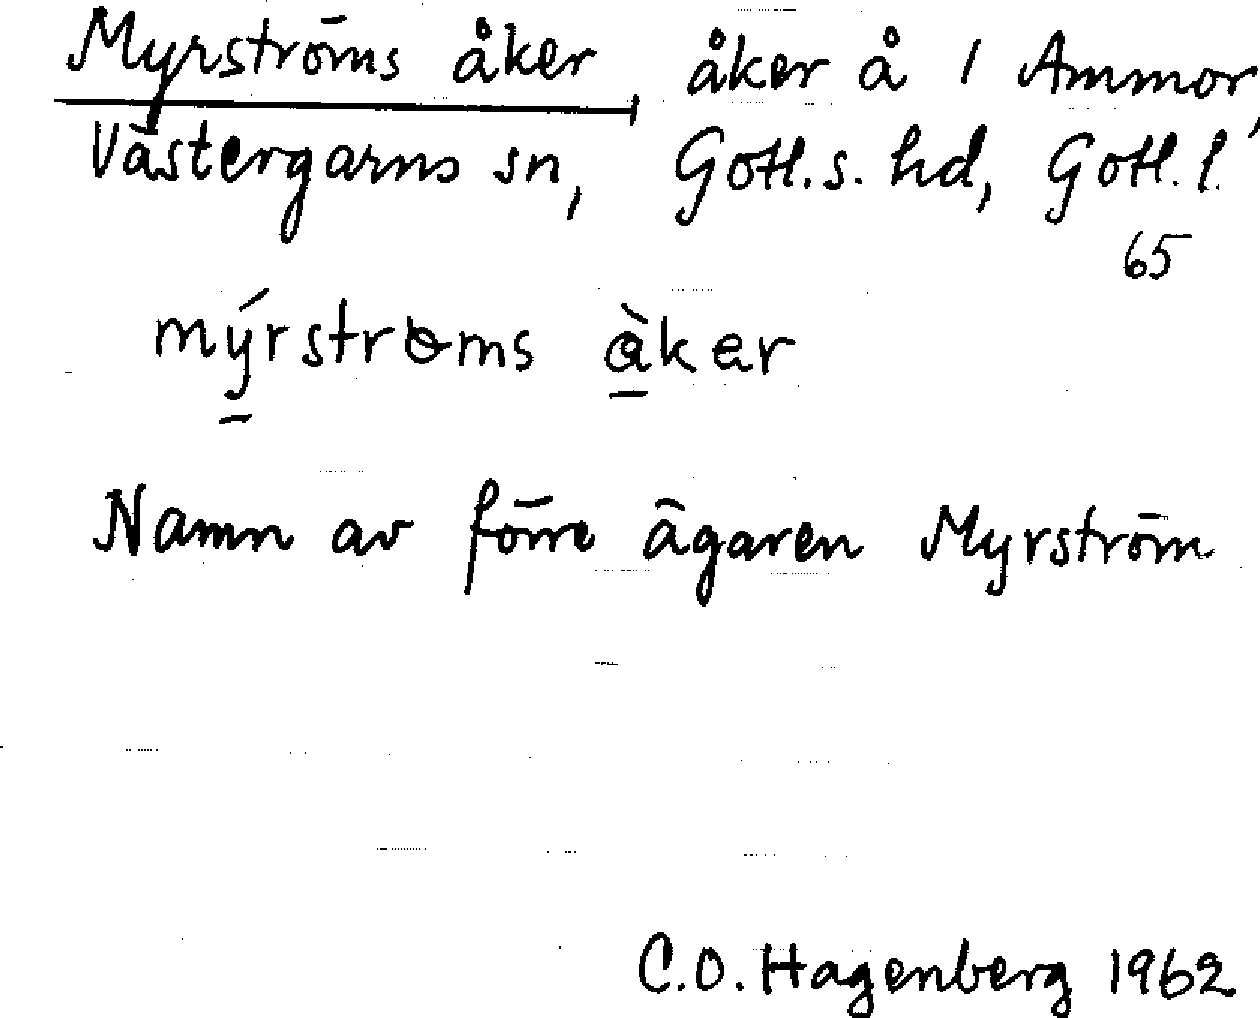 Myrströms åker, åker å 1 Ammor,
Västergarns sn, Gotl. s. hd, Gotl. l.
65
mýrstrɵms àkar
Namn av förre ägaren Myrström
C.O. Hagenberg 1962